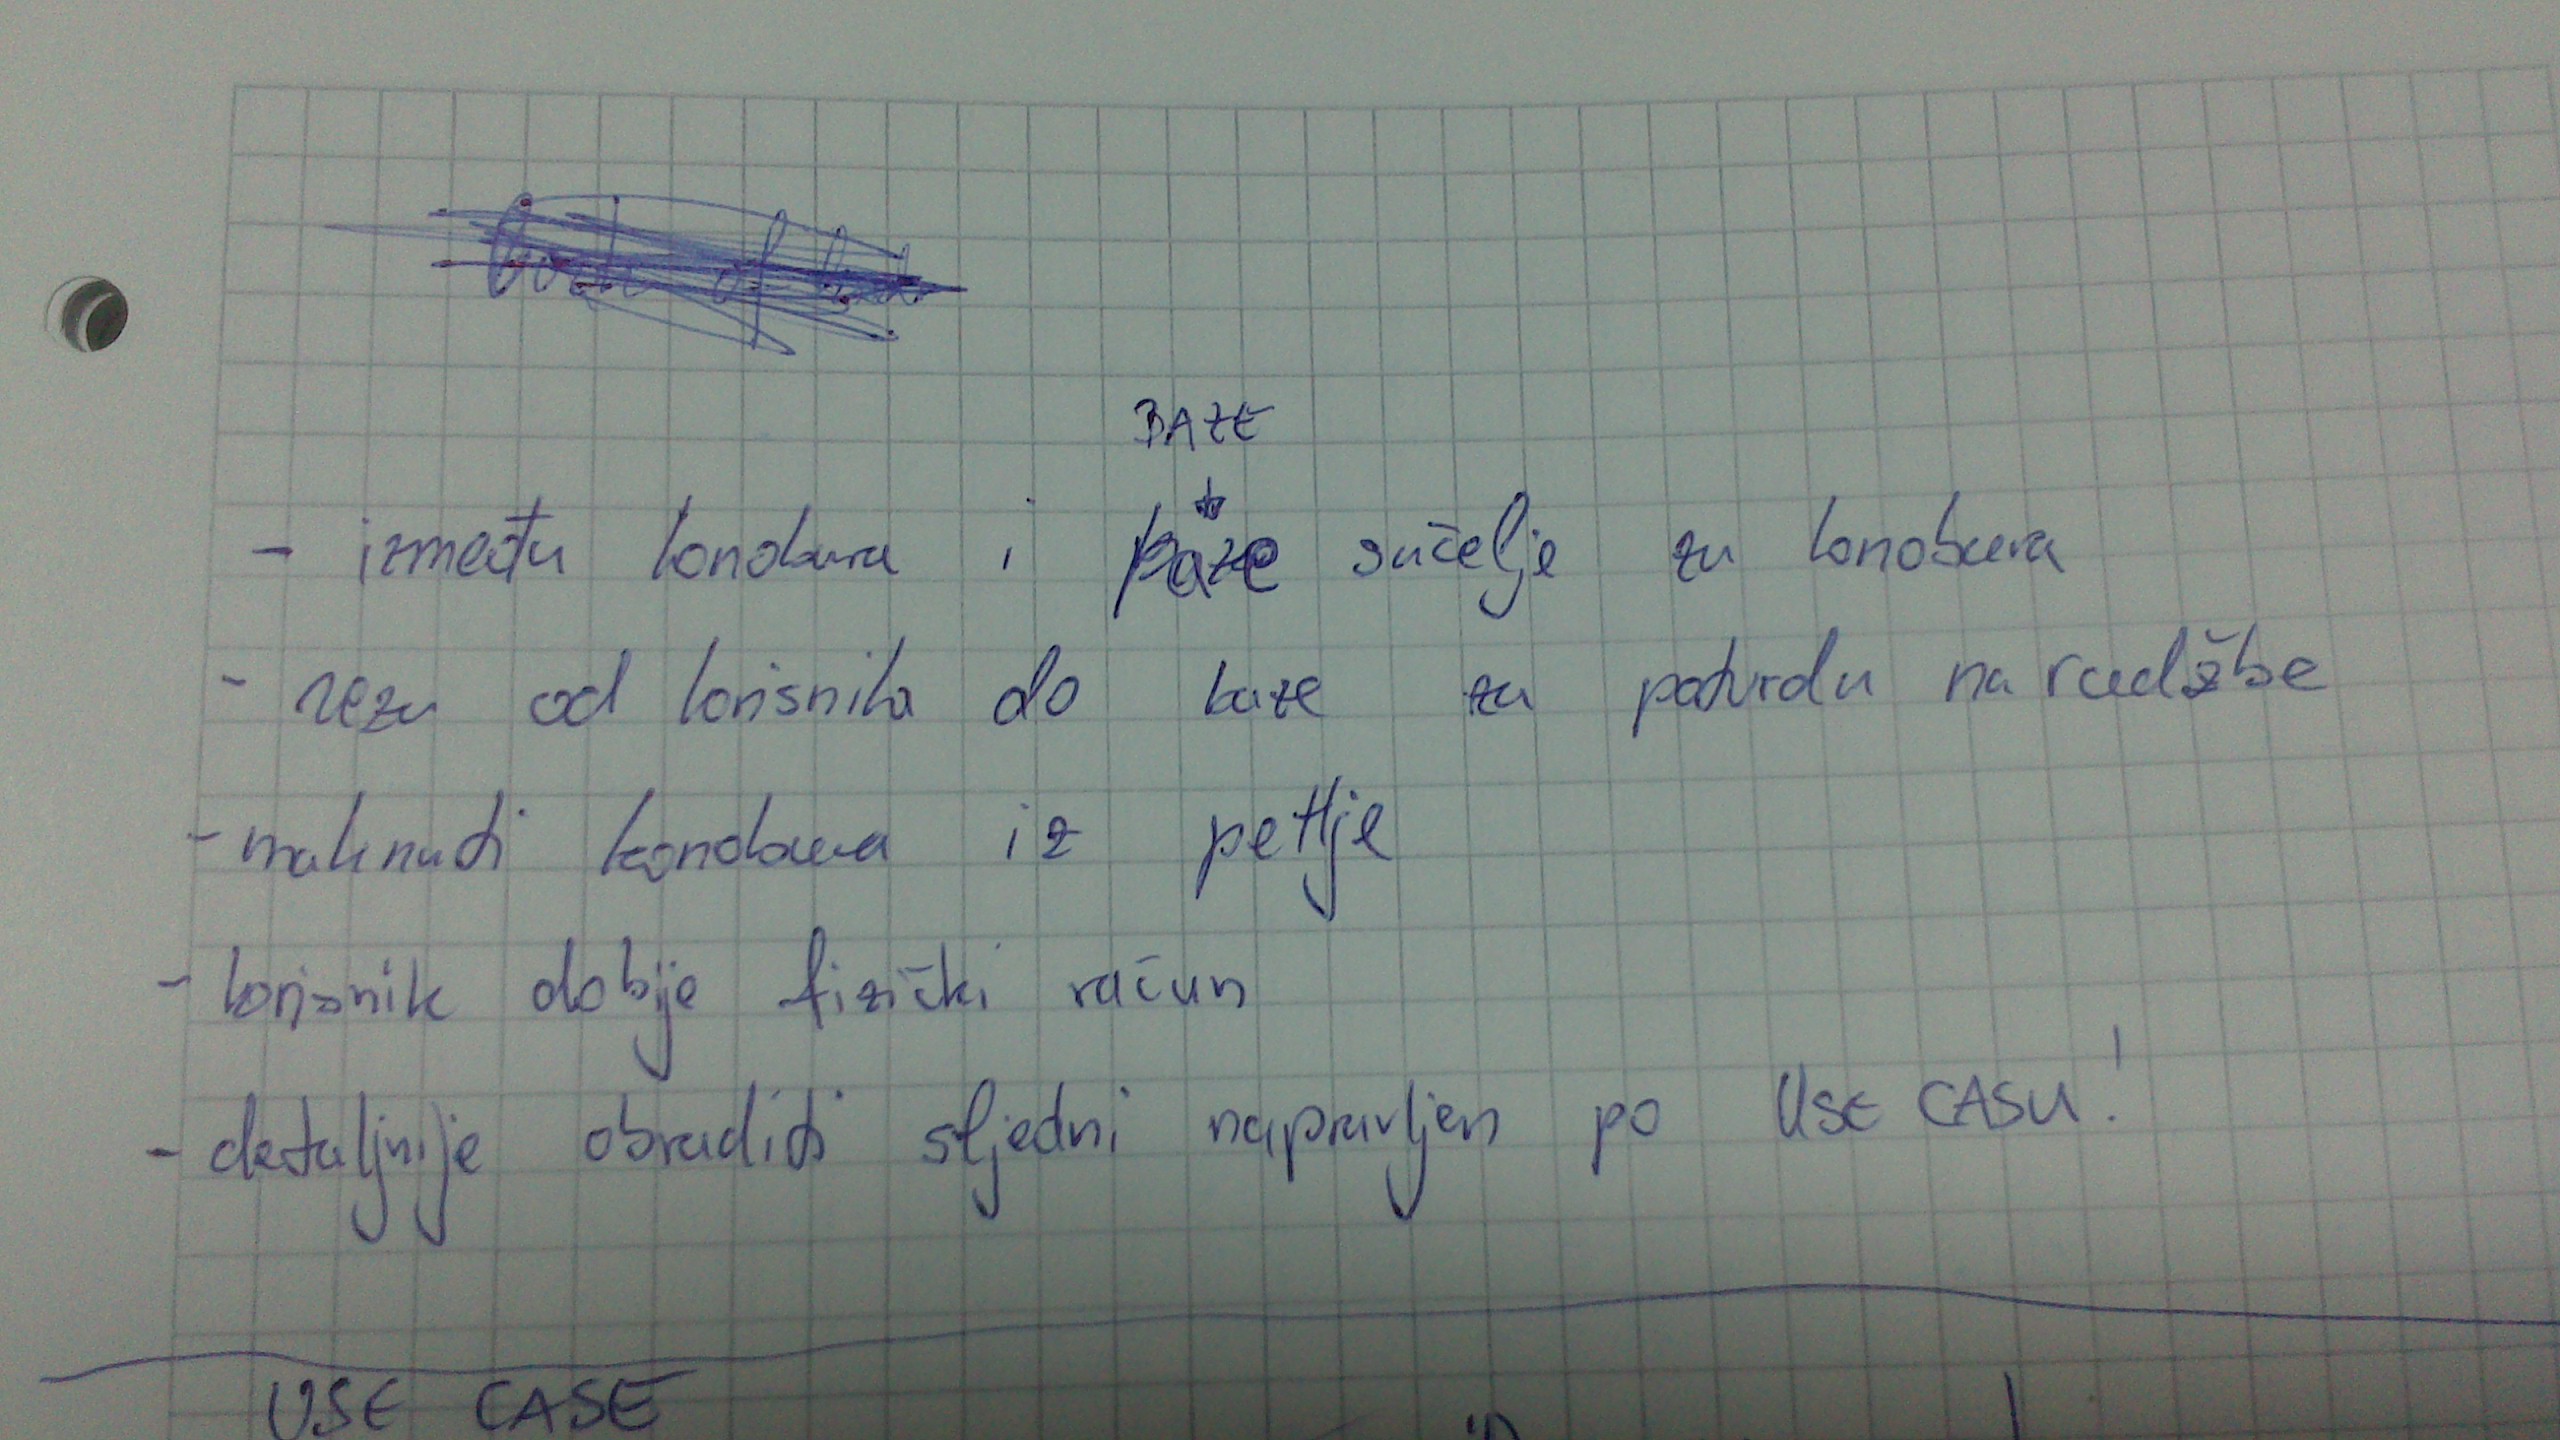 BAZE
- između konobara i baze sučelje za konobara
- vezu od korisnika do baze za potvrdu narudžbe
- maknuti konobara iz petlje
- korisnik dobije fizički račun
- detaljnije obraditi sljedni napravljen po USE CASU!
USE CASE